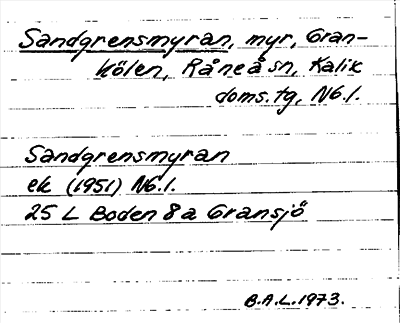 Sandgrensmyran, myr, Gran-
kölen, Råneå sn, Kalix
doms.tg, Nb.l.
Sandgrensmyran
ek (1951) Nb.l.
25 L Boden 8 a Gransjö
B.A.L. 1973.